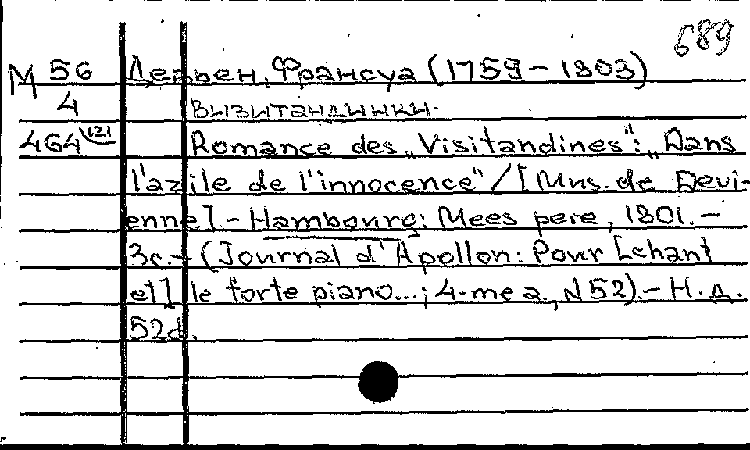 689
М 56 Девьен, Франсуа (1759-1803)
4 Вызитандинки.
464 121 Romance des „Visitandines": „Dans
l'azile de l'innocence" / [Mus. de Devi-
enne] - Hambourg: Mees pere, 1801. -
3с. - (Journal d'Apollon: Pour [chant
et] le forte piano...; 4-me a., N 52). - Н. д.
52d.